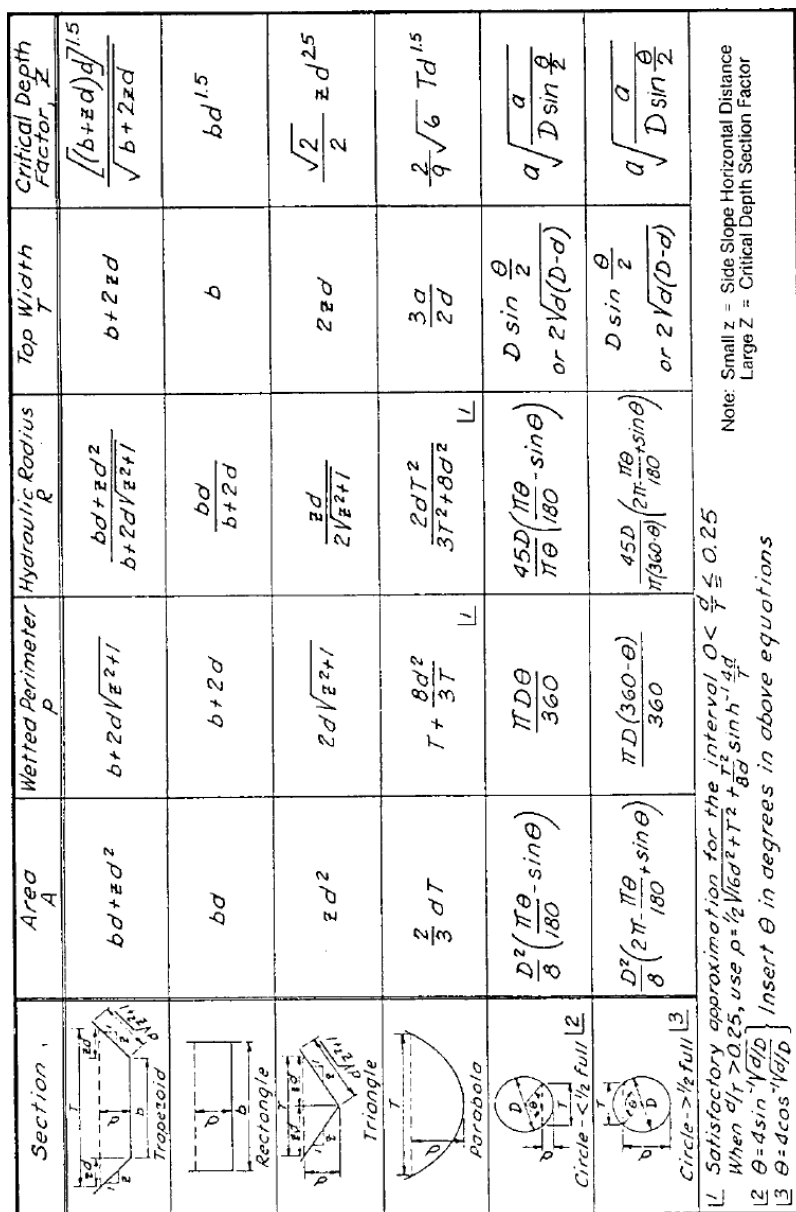 Section Area A Wetted Perimeter P Hydraulic Radius R Top Width T Critical Depth Factor, Z
T zd zd d b 1 z 1 z d√z²+1 Trapezoid bd+zd² b+2d√z²+1 (bd+zd²)/(b+2d√z²+1) b+2zd [(b+zd)d]^1.5/√b+2zd
d b Rectangle bd b+2d bd/(b+2d) b bd^1.5
T zd zd d 1 z 1 z d√z²+1 Triangle zd² 2d√z²+1 zd/(2√z²+1) 2zd (√2/2) zd^2.5
T d Parabola (2/3) dT T + 8d²/3T |1 2dT²/(3T²+8d²) |1 3a/2d (2/9)√6 Td^1.5
D θ d T Circle-<1/2 full |2 D²/8 (πθ/180 - sinθ) πDθ/360 45D/πθ (πθ/180 - sinθ) D sin θ/2 or 2√d(D-d) a√(a/(D sin θ/2))
T θ d D Circle->1/2 full |3 D²/8 (2π - πθ/180 + sinθ) πD(360-θ)/360 45D/π(360-θ) (2π - πθ/180 + sinθ) D sin θ/2 or 2√d(D-d) a√(a/(D sin θ/2))
|1 Satisfactory approximation for the interval 0 < d/T ≤ 0.25
When d/T >0.25, use p=1/2√16d²+T² + T²/8d sinh⁻¹ 4d/T
|2 θ=4sin⁻¹√d/D
|3 θ=4cos⁻¹√d/D } Insert θ in degrees in above equations
Note: Small z = Side Slope Horizontal Distance
Large Z = Critical Depth Section Factor